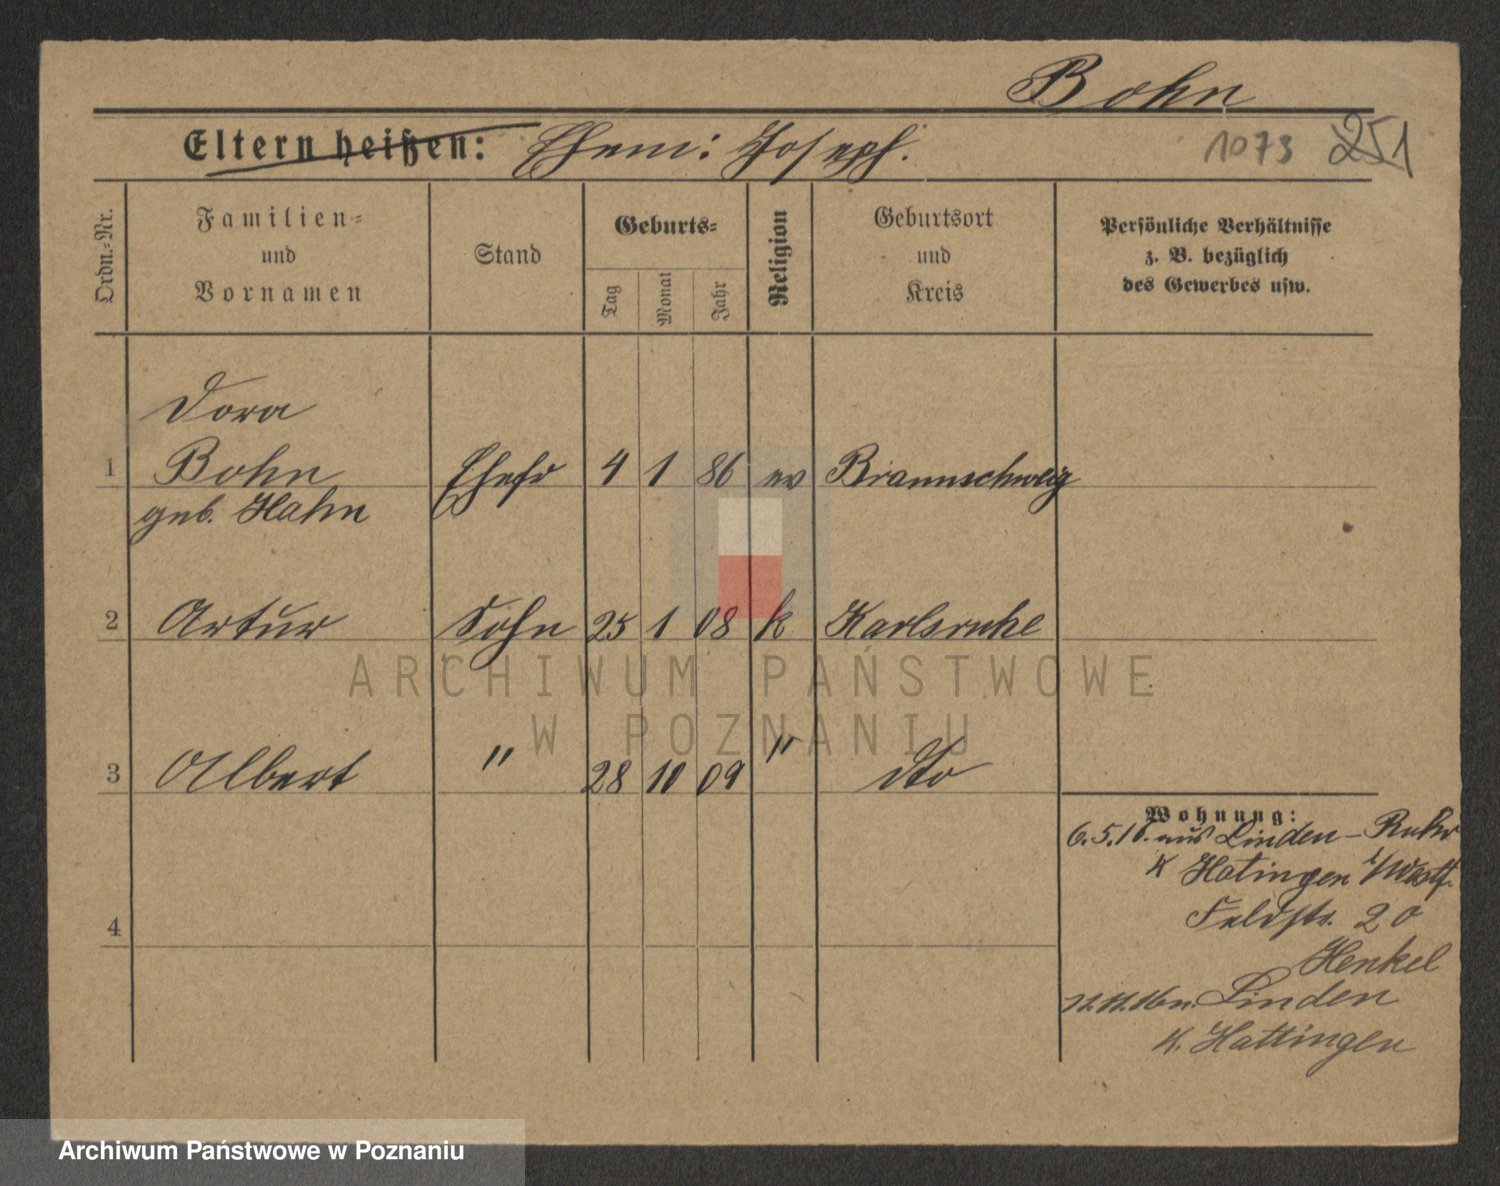 Bohn
Eltern heißen: Ehem: Joseph. 1073 251
Ordn.=Nr.
Familien=
und
Vornamen
Stand
Geburts=
Tag
Monat
Jahr
Religion
Geburtsort
und
Kreis
Persönliche Verhältnisse
z. B. bezüglich
des Gewerbes usw.
Dora
1 Bohn Ehefr 4 1 86 ev Braunschweig
geb. Hahn
2 Artur Sohn 25 1 08 k Karlsruhe
3 Albert " 28 10 09 " dto
4
Wohnung:
6.5.16. aus Linden-Ruhr
K Hatingen i/Westf.
Feldstr. 20
Henkel
n. Linden
K. Hattingen
ARCHIWUM PAŃSTWOWE
W POZNANIU
Archiwum Państwowe w Poznaniu